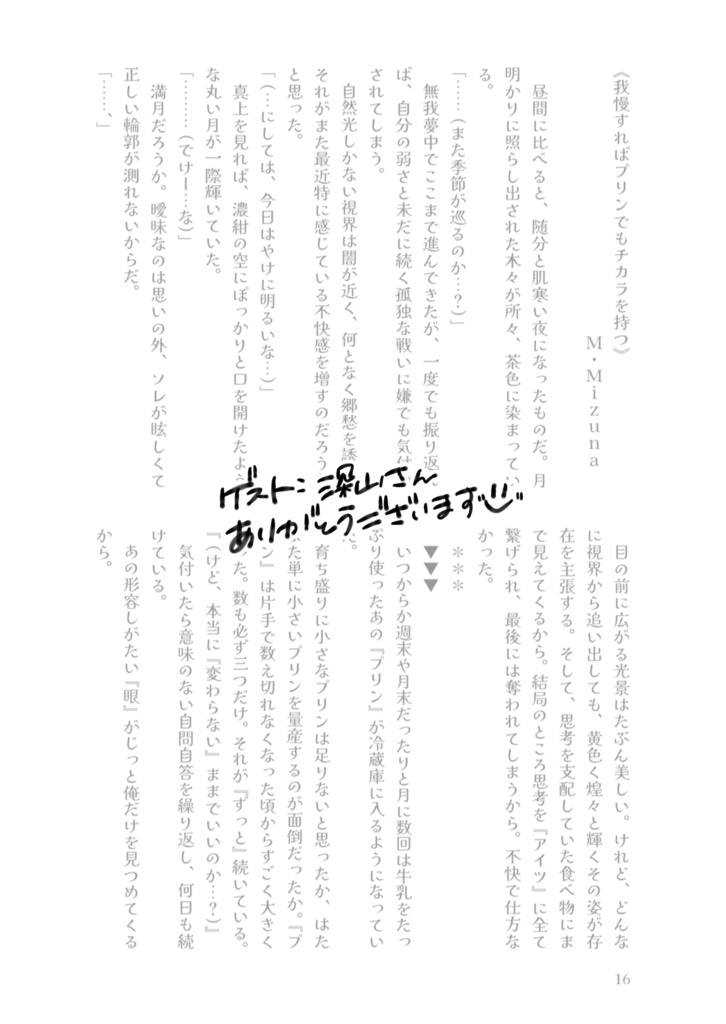 《我慢すればプリンでもチカラを持つ》
M・Mizuna
昼間に比べると、随分と肌寒い夜になったものだ。月
明かりに照らし出された木々が所々、茶色に染まってい
る。
「……(また季節が巡るのか…?)」
無我夢中でここまで進んできたが、一度でも振り返
ば、自分の弱さと未だに続く孤独な戦いに嫌でも気付
されてしまう。
自然光しかない視界は闇が近く、何となく郷愁を誘
それがまた最近特に感じている不快感を増すのだろう
と思った。
「(…にしては、今日はやけに明るいな…)」
真上を見れば、濃紺の空にぽっかりと口を開けたよう
な丸い月が一際輝いていた。
「………(でけー…な)」
満月だろうか。曖昧なのは思いの外、ソレが眩しくて
正しい輪郭が測れないからだ。
「……、」
目の前に広がる光景はたぶん美しい。けれど、どんな
に視界から追い出しても、黄色く煌々と輝くその姿が存
在を主張する。そして、思考を支配していた食べ物にま
で見えてくるから。結局のところ思考を『アイツ』に全て
繋げられ、最後には奪われてしまうから。不快で仕方な
かった。
***
▼▼▼
いつからか週末や月末だったりと月に数回は牛乳をたっ
ぷり使ったあの『プリン』が冷蔵庫に入るようになってい
た。
育ち盛りに小さなプリンは足りないと思ったか、はた
た単に小さいプリンを量産するのが面倒だったか。『プ
ン』は片手で数え切れなくなった頃からすごく大きく
った。数も必ず三つだけ。それが『ずっと』続いている。
『(けど、本当に『変わらない』ままでいいのか…?)』
気付いたら意味のない自問自答を繰り返し、何日も続
けている。
あの形容しがたい『眼』がじっと俺だけを見つめてくる
から。
ゲスト:深山さん
ありがとうございます
16